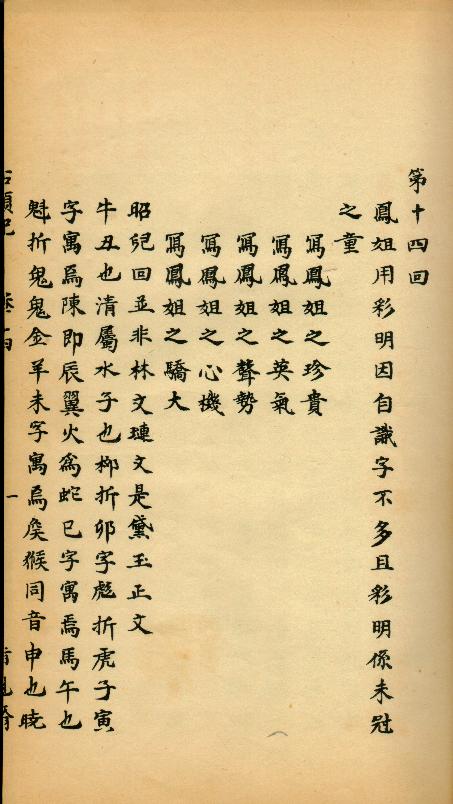 第十四回
鳳姐用彩明因自識字不多且彩明係未冠
之童
寫鳳姐之珍貴
寫鳳姐之英氣
寫鳳姐之聲勢
寫鳳姐之心機
寫鳳姐之驕大
昭兒回並非林文璉文是黛玉正文
牛丑也清屬水子也柳折卯字彪折虎子寅
字寓焉陳即辰翼火為蛇巳字寓焉馬午也
魁折鬼鬼金羊未字寓焉矦猴同音申也曉
一